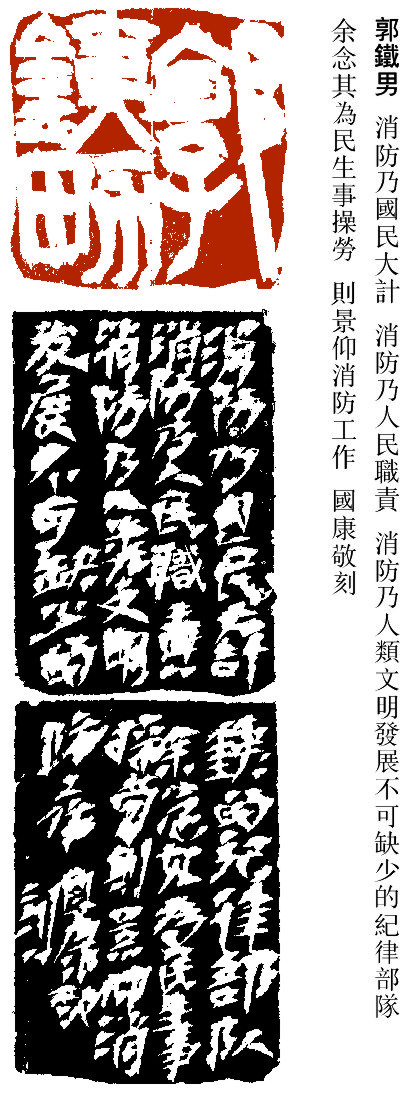 郭鐵男 消防乃國民大計 消防乃人民職責 消防乃人類文明發展不可缺少的紀律部隊
余念其為民生事操勞 則景仰消防工作 國康敬刻
郭
鐵男
消防乃国民大計
消防乃人民職責
消防乃人类文明
发展不可缺少的
的紀律部队
余念其為民事
操劳則景仰消
防工作